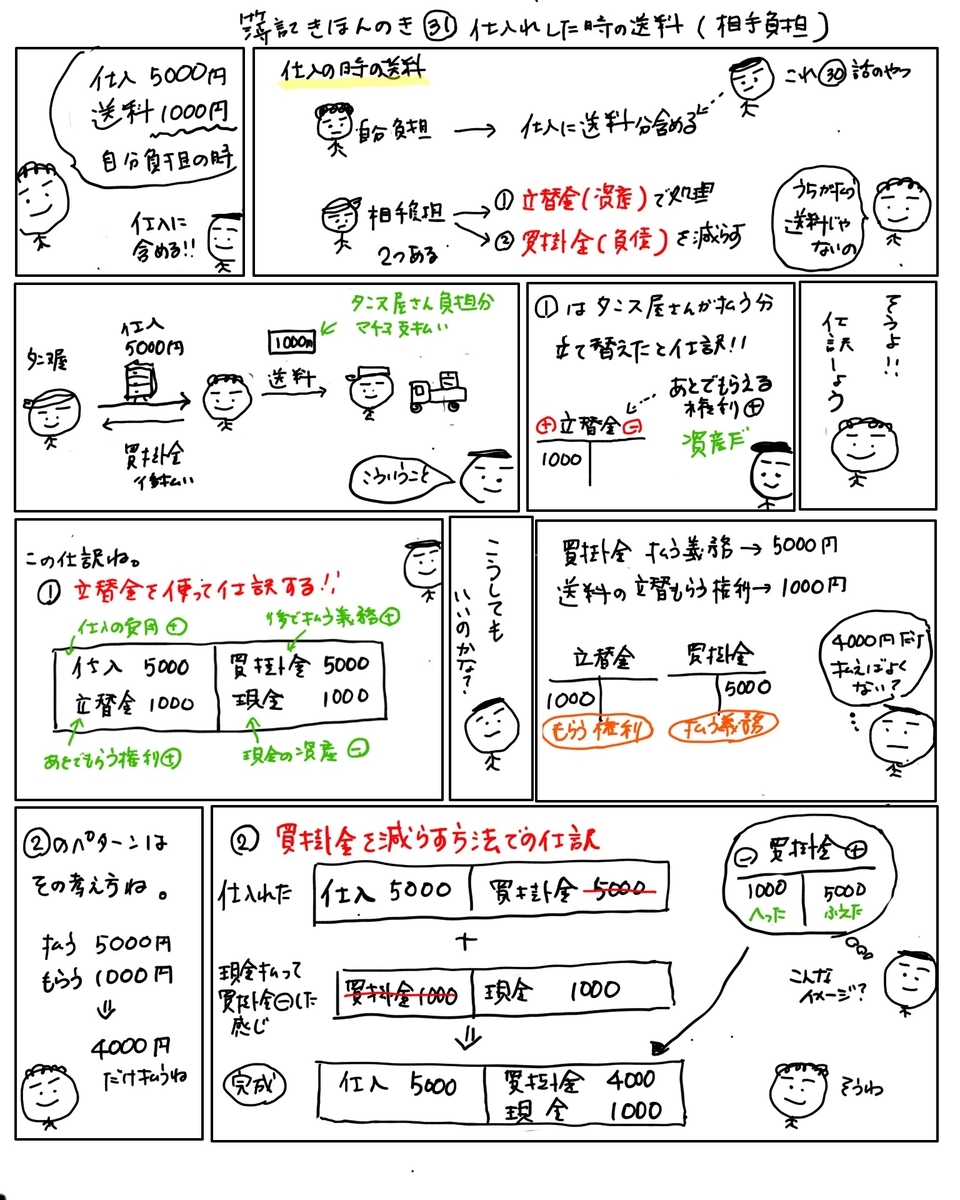 簿記きほんのき㉛ 仕入れした時の送料(相手負担)
仕入 5000円
送料 1000円
自分負担の時
仕入に
含める!!
仕入の時の送料
自分負担 → 仕入に送料分含める
これ㉚話のやつ
相手負担
2つある
① 立替金(資産)で処理
② 買掛金(負債)を減らす
うちが払う
送料じゃ
ないの
タンス屋
仕入
5000円
買掛金
後払い
タンス屋さん負担分
1000円
送料
こういうこと
①はタンス屋さんが払う分
立て替えたと仕訳!!
あとでもらえる
権利⊕
資産だ
⊕立替金⊖
1000
そうよ!!
仕訳しよう
この仕訳ね。
① 立替金を使って仕訳する!!
仕入の費用⊕
後で払う義務⊕
仕入 5000 買掛金 5000
立替金 1000 現金 1000
あとでもらう権利⊕
現金の資産⊖
こうしても
いいのかな?
買掛金 払う義務→5000円
送料の立替もらう権利→1000円
立替金 買掛金
1000 5000
もらう権利 払う義務
4000円だけ
払えばよく
ない?
②のパターンは
その考え方ね。
払う 5000円
もらう 1000円
⇓
4000円
だけ払うね
② 買掛金を減らす方法での仕訳
仕入れた
仕入 5000 買掛金 5000
+
現金払って
買掛金⊖した
感じ
買掛金 1000 現金 1000
⇓
完成
仕入 5000 買掛金 4000
現金 1000
⊖ 買掛金 ⊕
1000 5000
へった ふえた
こんな
イメージ?
そうね